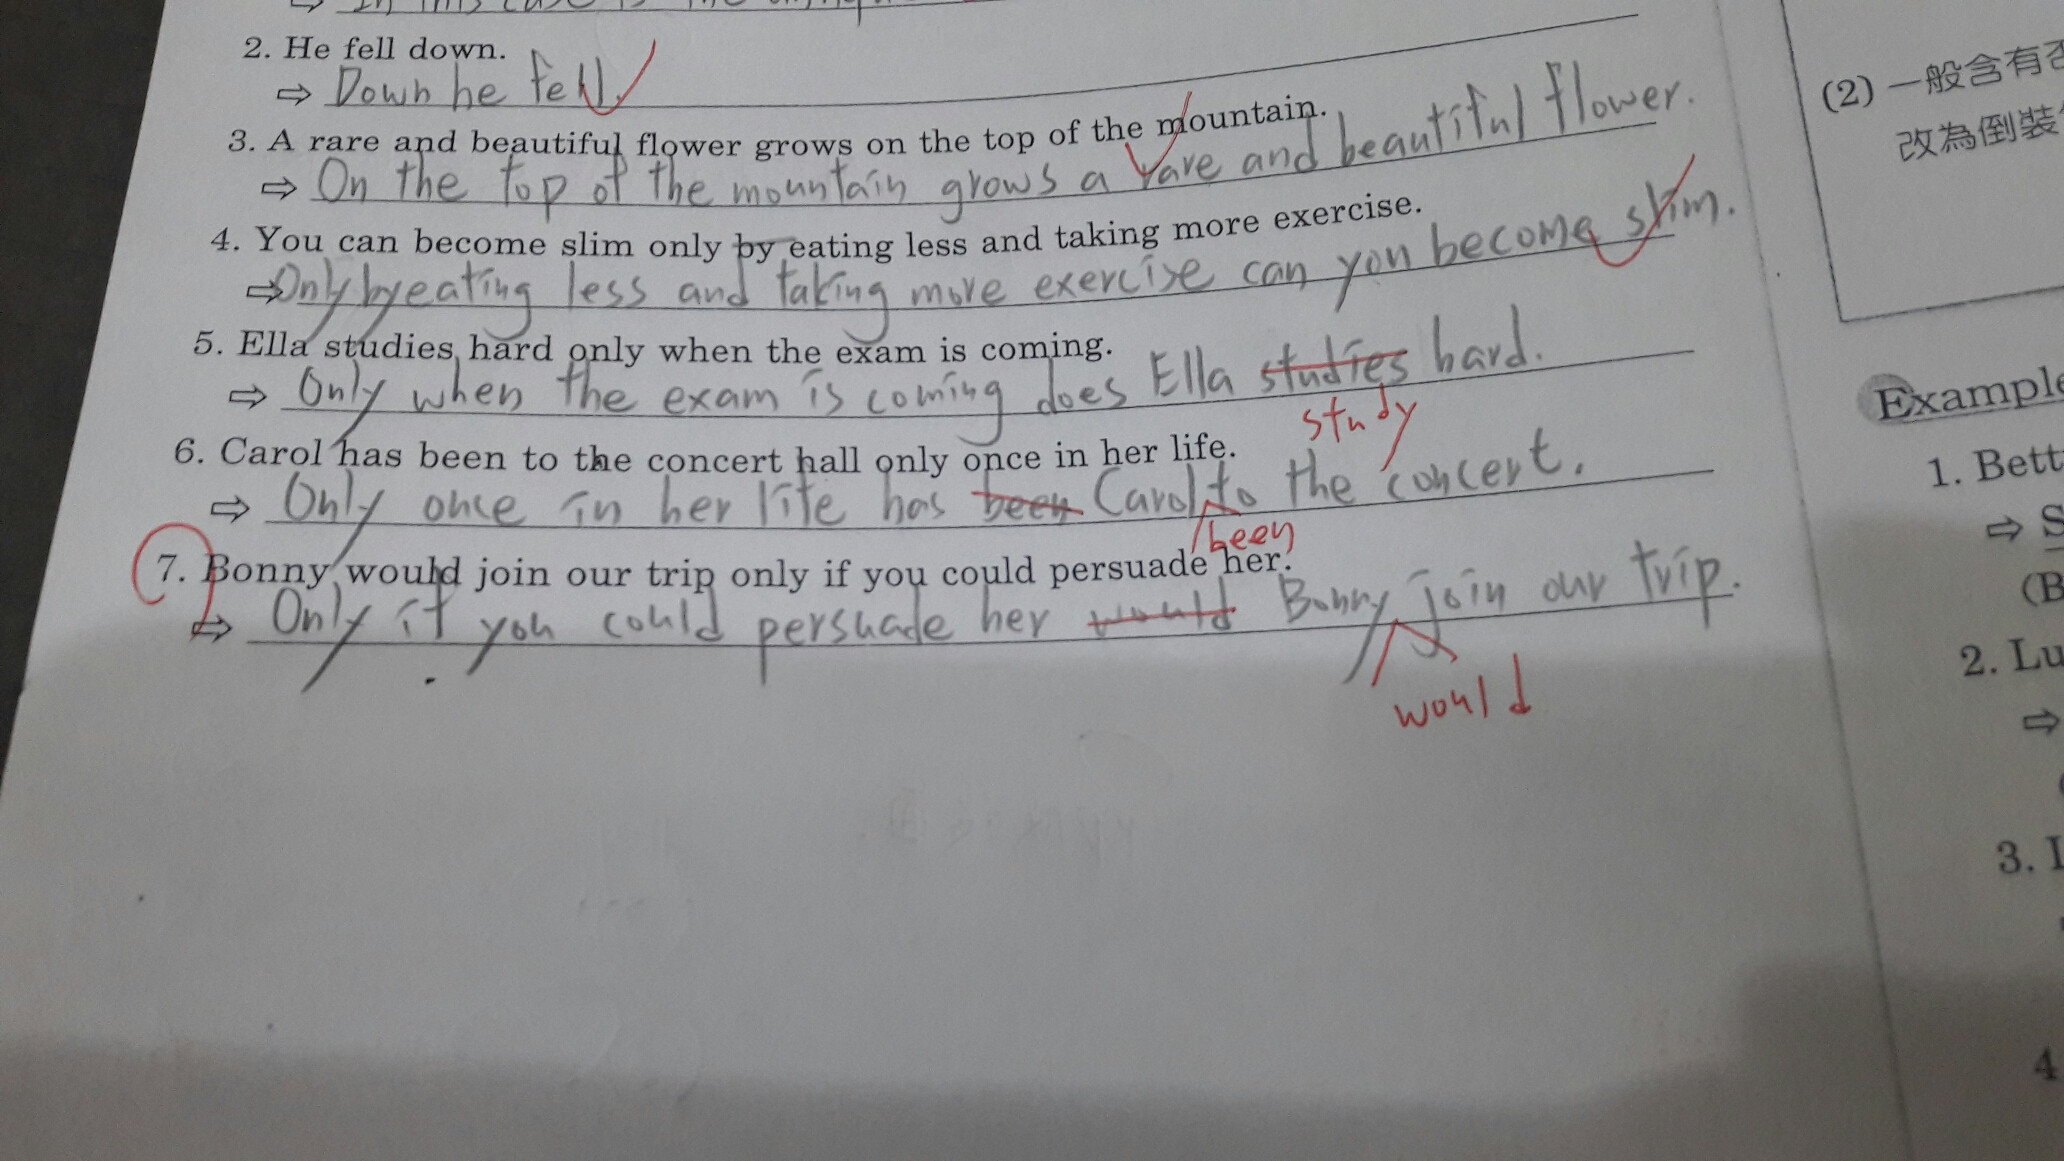 2. He fell down.
⇒ Down he fell.
3. A rare and beautiful flower grows on the top of the mountain.
⇒ On the top of the mountain grows a rare and beautiful flower.
4. You can become slim only by eating less and taking more exercise.
⇒ Only by eating less and taking more exercise can you become slim.
5. Ella studies hard only when the exam is coming.
⇒ Only when the exam is coming does Ella studies hard.
study
6. Carol has been to the concert hall only once in her life.
⇒ Only once in her life has been Carol to the concert.
been
7. Bonny would join our trip only if you could persuade her.
⇒ Only if you could persuade her would Bonny join our trip.
would
(2) 一般含有否
改為倒裝
Example
1. Bett
⇒ S
(B
2. Lu
⇒
3. I
4